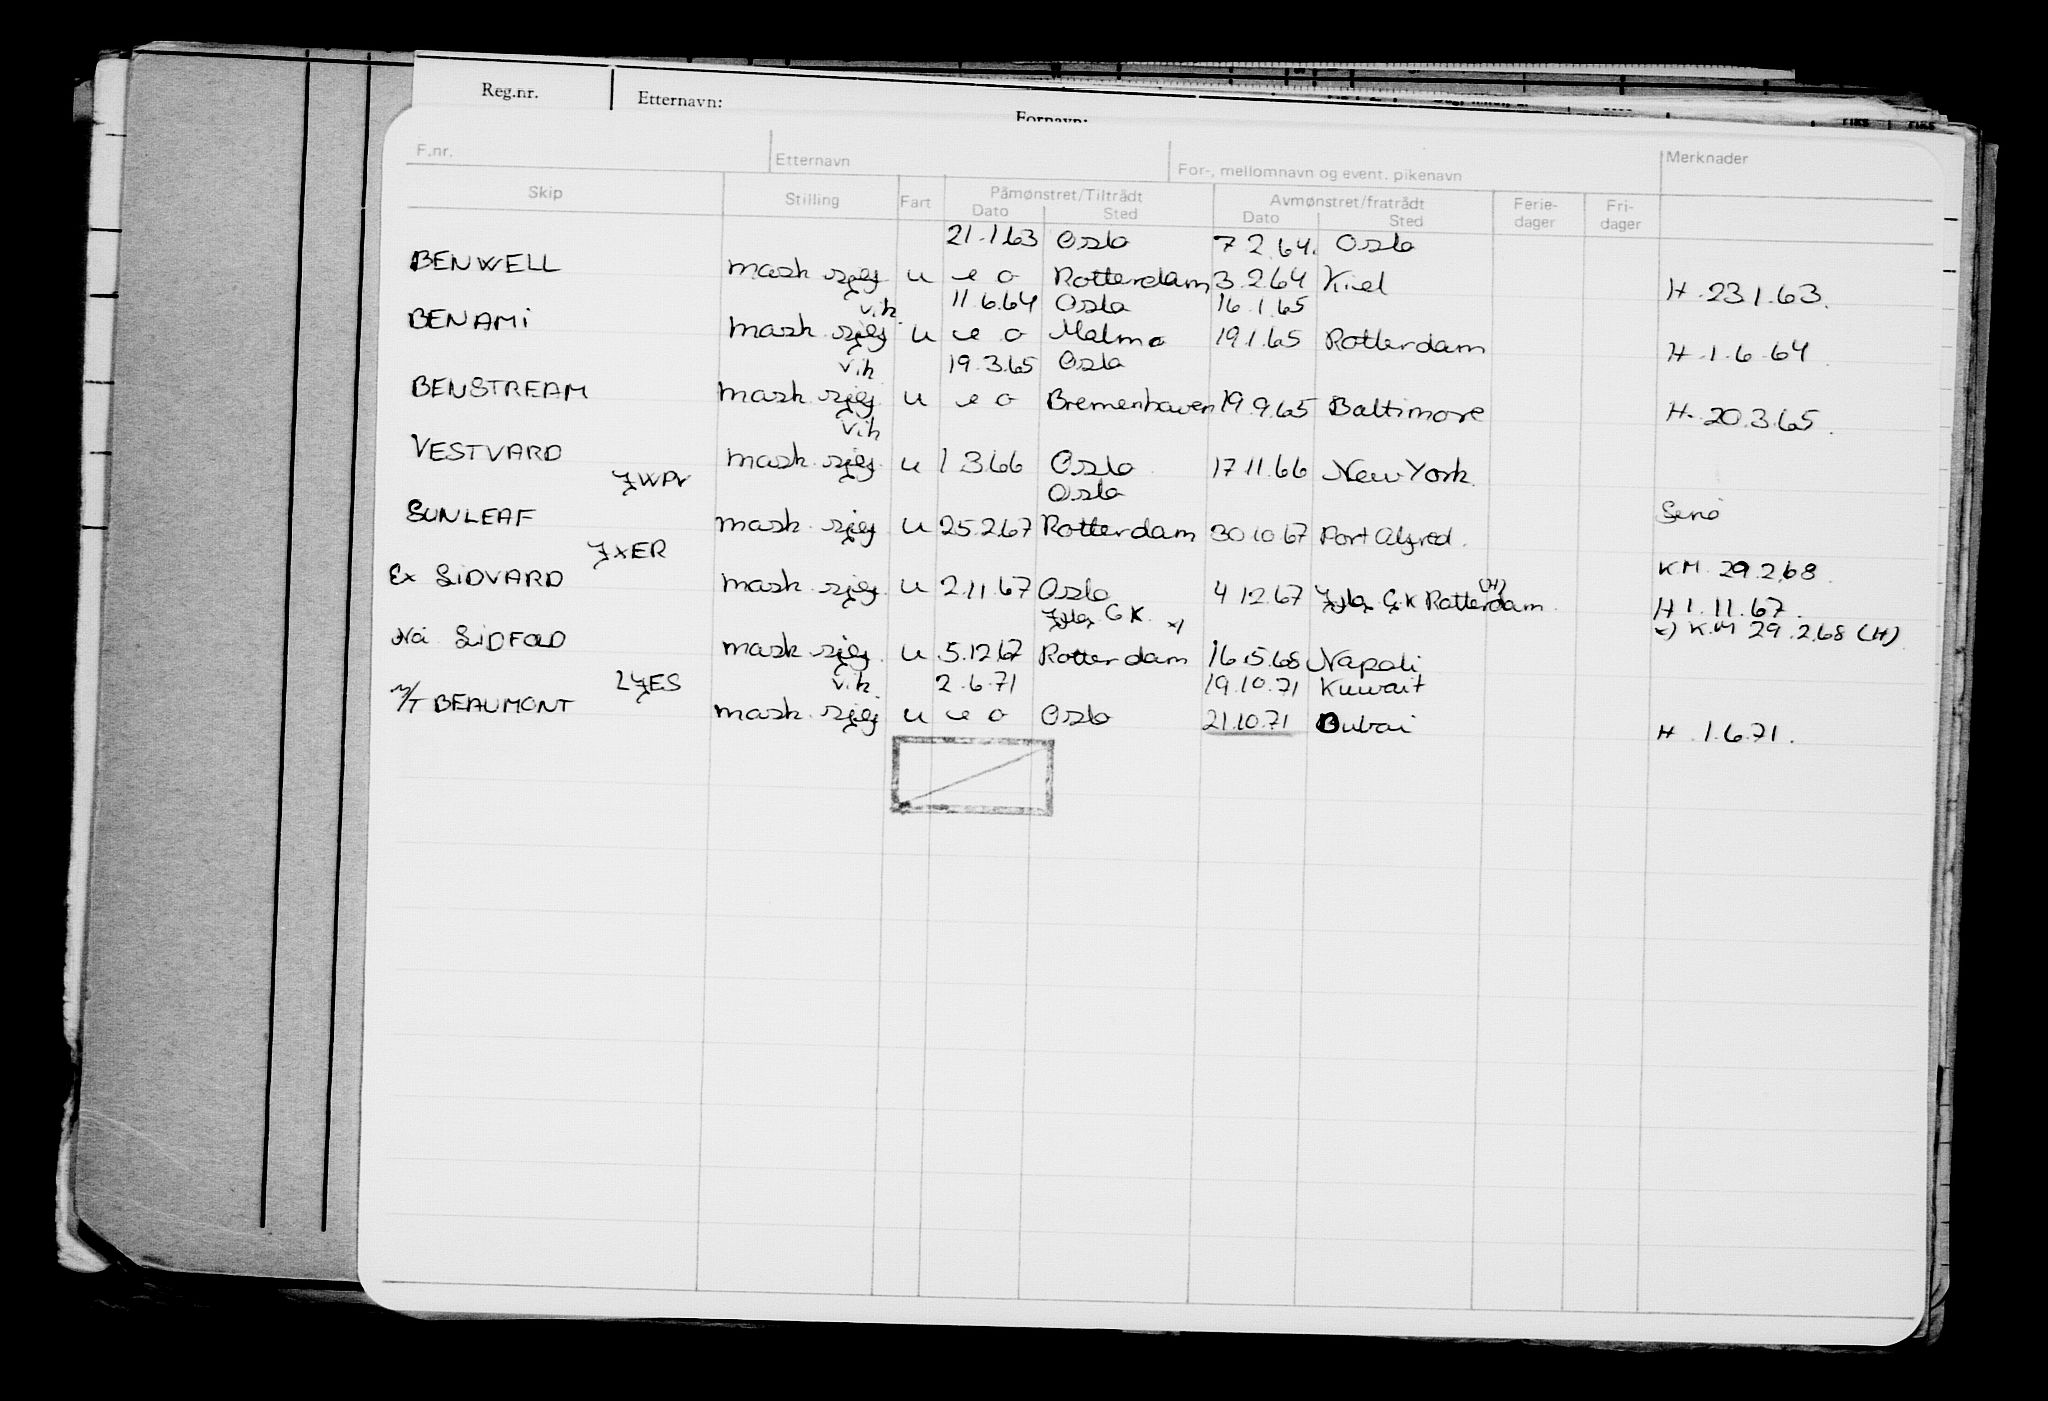 Reg.nr. Etternavn: Fornavn:
F.nr. Etternavn For-, mellomnavn og event. pikenavn Merknader
Skip Stilling Fart Påmønstret/Tiltrådt Avmønstret/fratrådt Ferie- Fri-
Dato Sted Dato Sted dager dager
21.1.63 Oslo 7.2.64. Oslo
BENWELL mask.sjef u e o Rotterdam 3.2.64 Kiel H. 23.1.63.
v.h. 11.6.64 Oslo 16.1.65
BENAMI mask.sjef u e o Malmø 19.1.65 Rotterdam H. 1.6.64
v.h 19.3.65 Oslo
BENSTREAM mask.sjef u e o Bremenhaven 19.9.65 Baltimore H. 20.3.65.
v.h
VESTVARD mask.sjef u 1.3.66 Oslo 17.11.66 New York
JWPV Oslo
SUNLEAF mask.sjef u 25.2.67 Rotterdam 30.10.67 Port Alfred.
JXER KM 29.2.68.
Ex SIDVARD mask.sjef u 2.11.67 Oslo 4.12.67 G.K Rotterdam (H) H 1.11.67.
G.K. x) x) K.M 29.2.68 (H)
Nå SIDFOLD mask.sjef u 5.12.67 Rotterdam 16.5.68 Napoli
LJES v.h. 2.6.71 19.10.71 Kuwait
M/T BEAUMONT mask.sjef u e o Oslo 21.10.71 Dubai H 1.6.71.